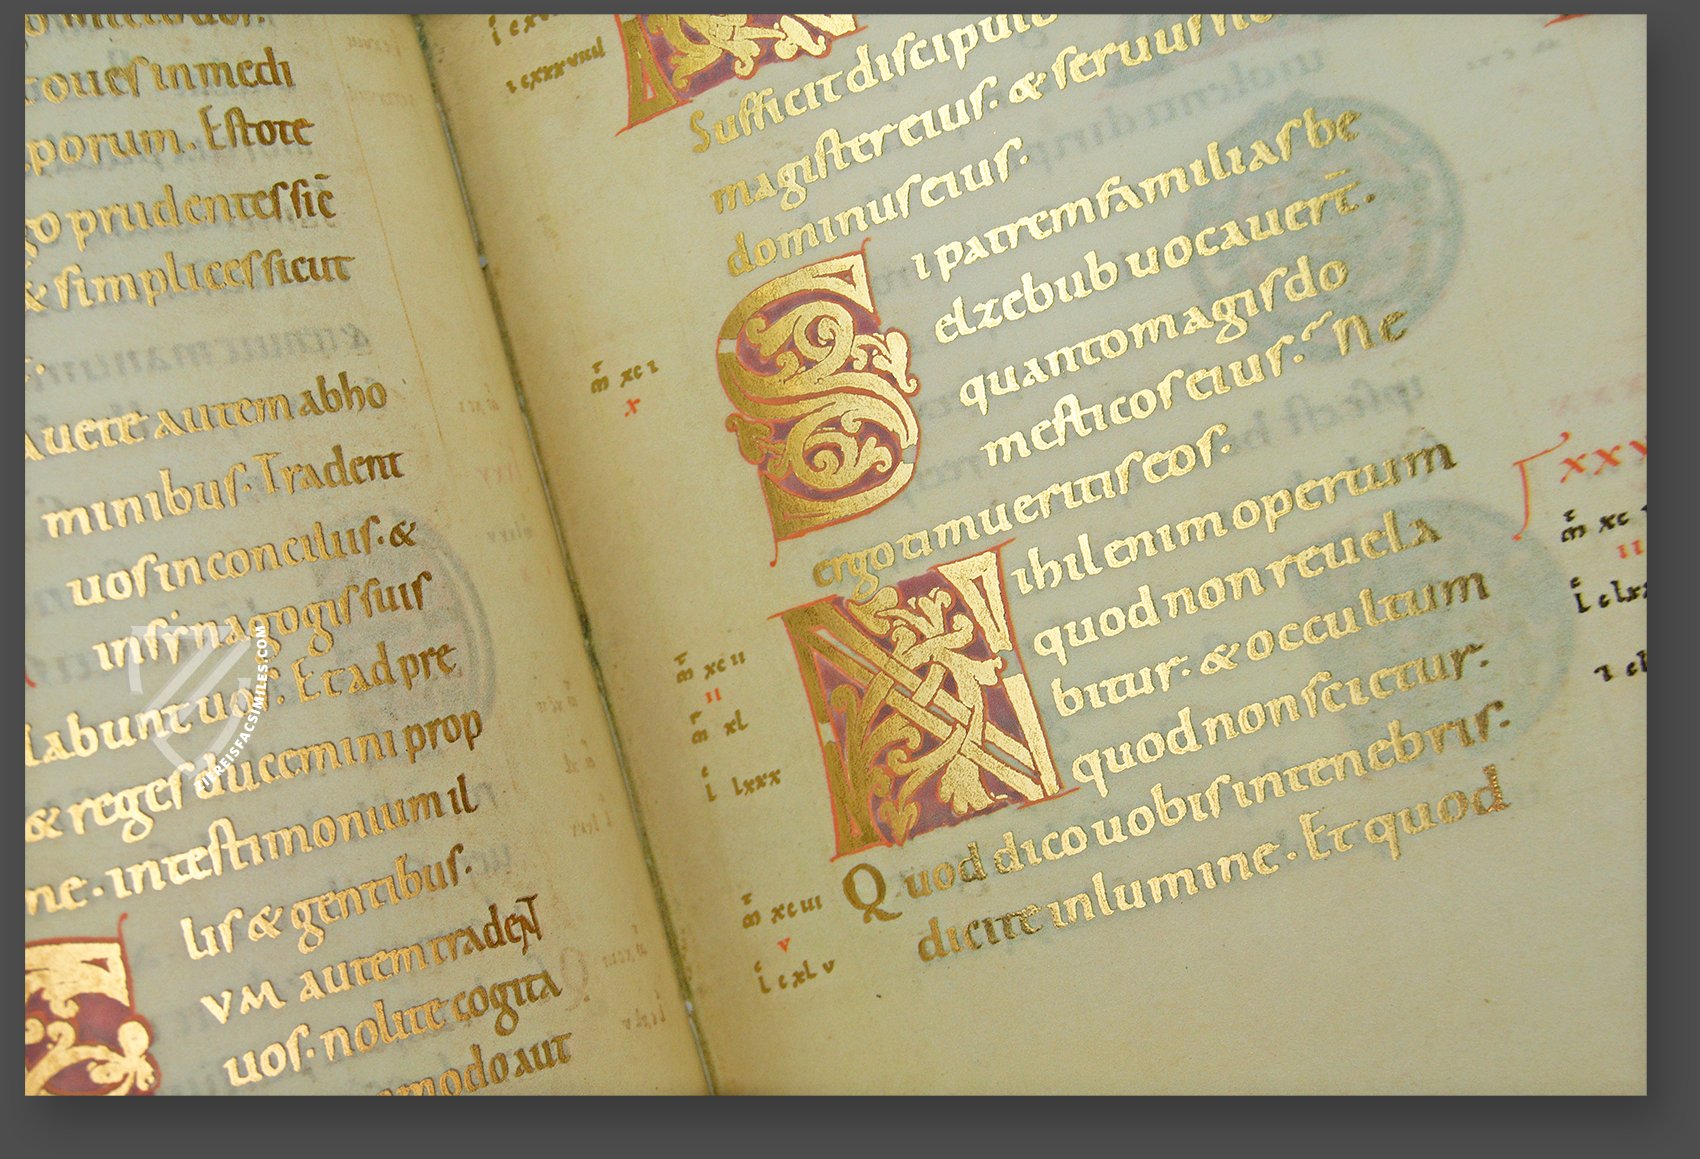 toues inmedi
porum. Estote
go prudentes siē
& simplices sicut
auete autem abho
minibus. Tradent
uos inconciliis. &
insynagogis suis
labunt uos. Et ad pre
& reges ducemini prop
me. intestimonium il
lis & gentibus.
VM autem tradent
uos. nolite cogita
modo aut
ı cxxxvııı
Sufficit discipulo
magister eius. & seruus
dominus eius.
m̄ xcı
x
Si patrem familias be
elzebub uocauer̄t.
quanto magis do
mesticos eius. Ne
ergo timueritis eos.
m̄ xcıı
ıı
m̄ xl
l lxxx
Nihil enim opertum
quod non reuela
bitur. & occultum
quod non scietur.
m̄ xcııı
v
l cxlv
Quod dico uobis intenebris.
dicite inlumine. Et quod
xxx
m̄ xc
ıı
VIREISFACSIMILES.COM